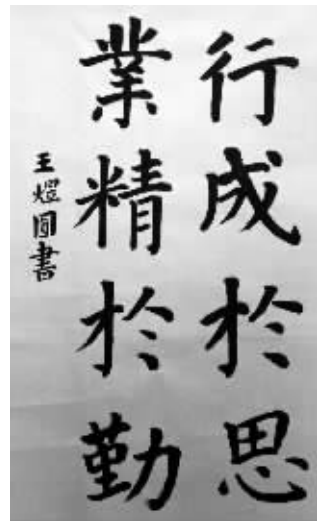 行成於思
業精於勤
王熠圓書